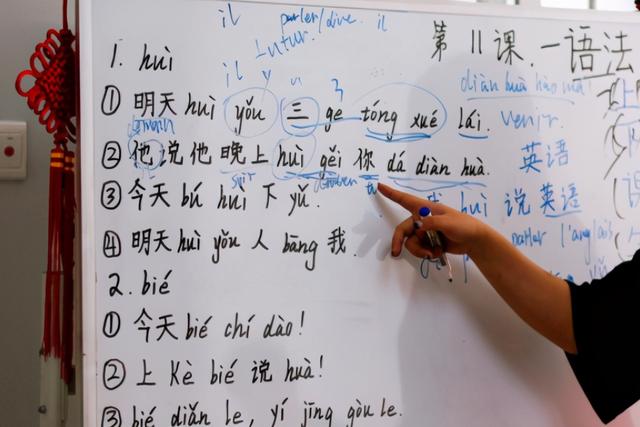 il parler/dire. il
第11课.一语法
Futur.
1. huì
il y
diàn huà hào mǎ
3
① 明天 huì yǒu 三 ge tóng xué lái. venir.
demain
② 他说他晚上 huì gěi 你 dá diàn huà. 英语
soir tu
③ 今天 bú huì 下 yǔ. huì 说英语
④ 明天 huì yǒu 人 bāng 我. parler l'anglais
2. bié
① 今天 bié chí dào!
② 上 Kè bié 说 huà!
③ bié diǎn le, yí jīng gòu le.